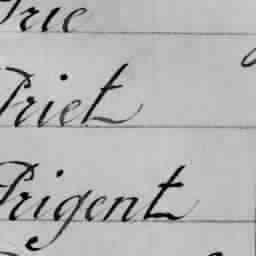 Prie
Priet
Prigent